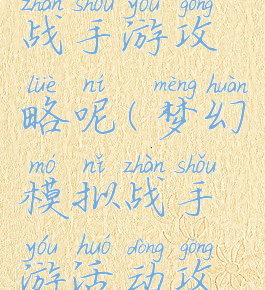 zhàn shǒu yóu gōng
战手游攻
lüè ní mèng huàn
略呢(梦幻
mó nǐ zhàn shǒu
模拟战手
yóu huó dòng gōng
游活动攻